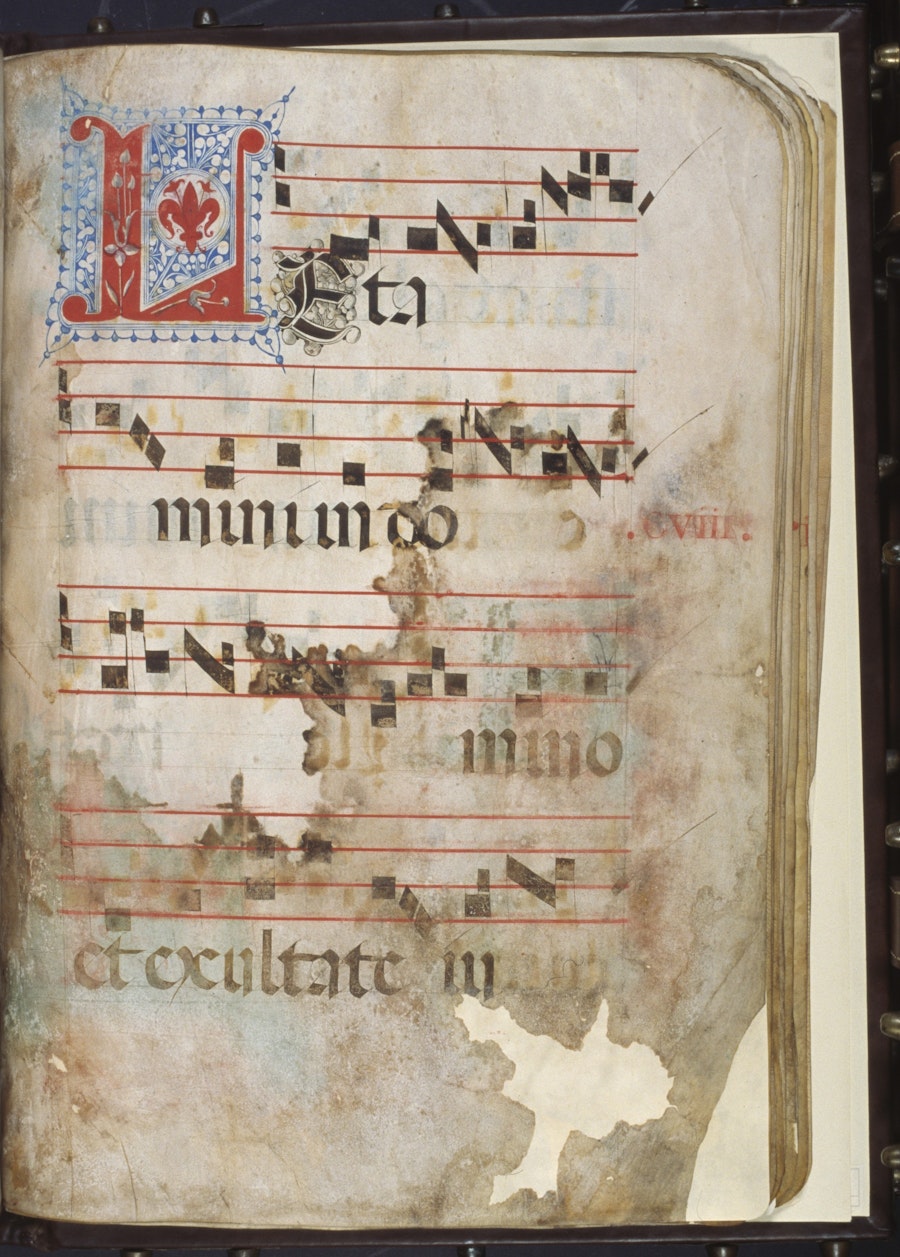 LEta
mini in do
.cviii.
mino
et exultate iu